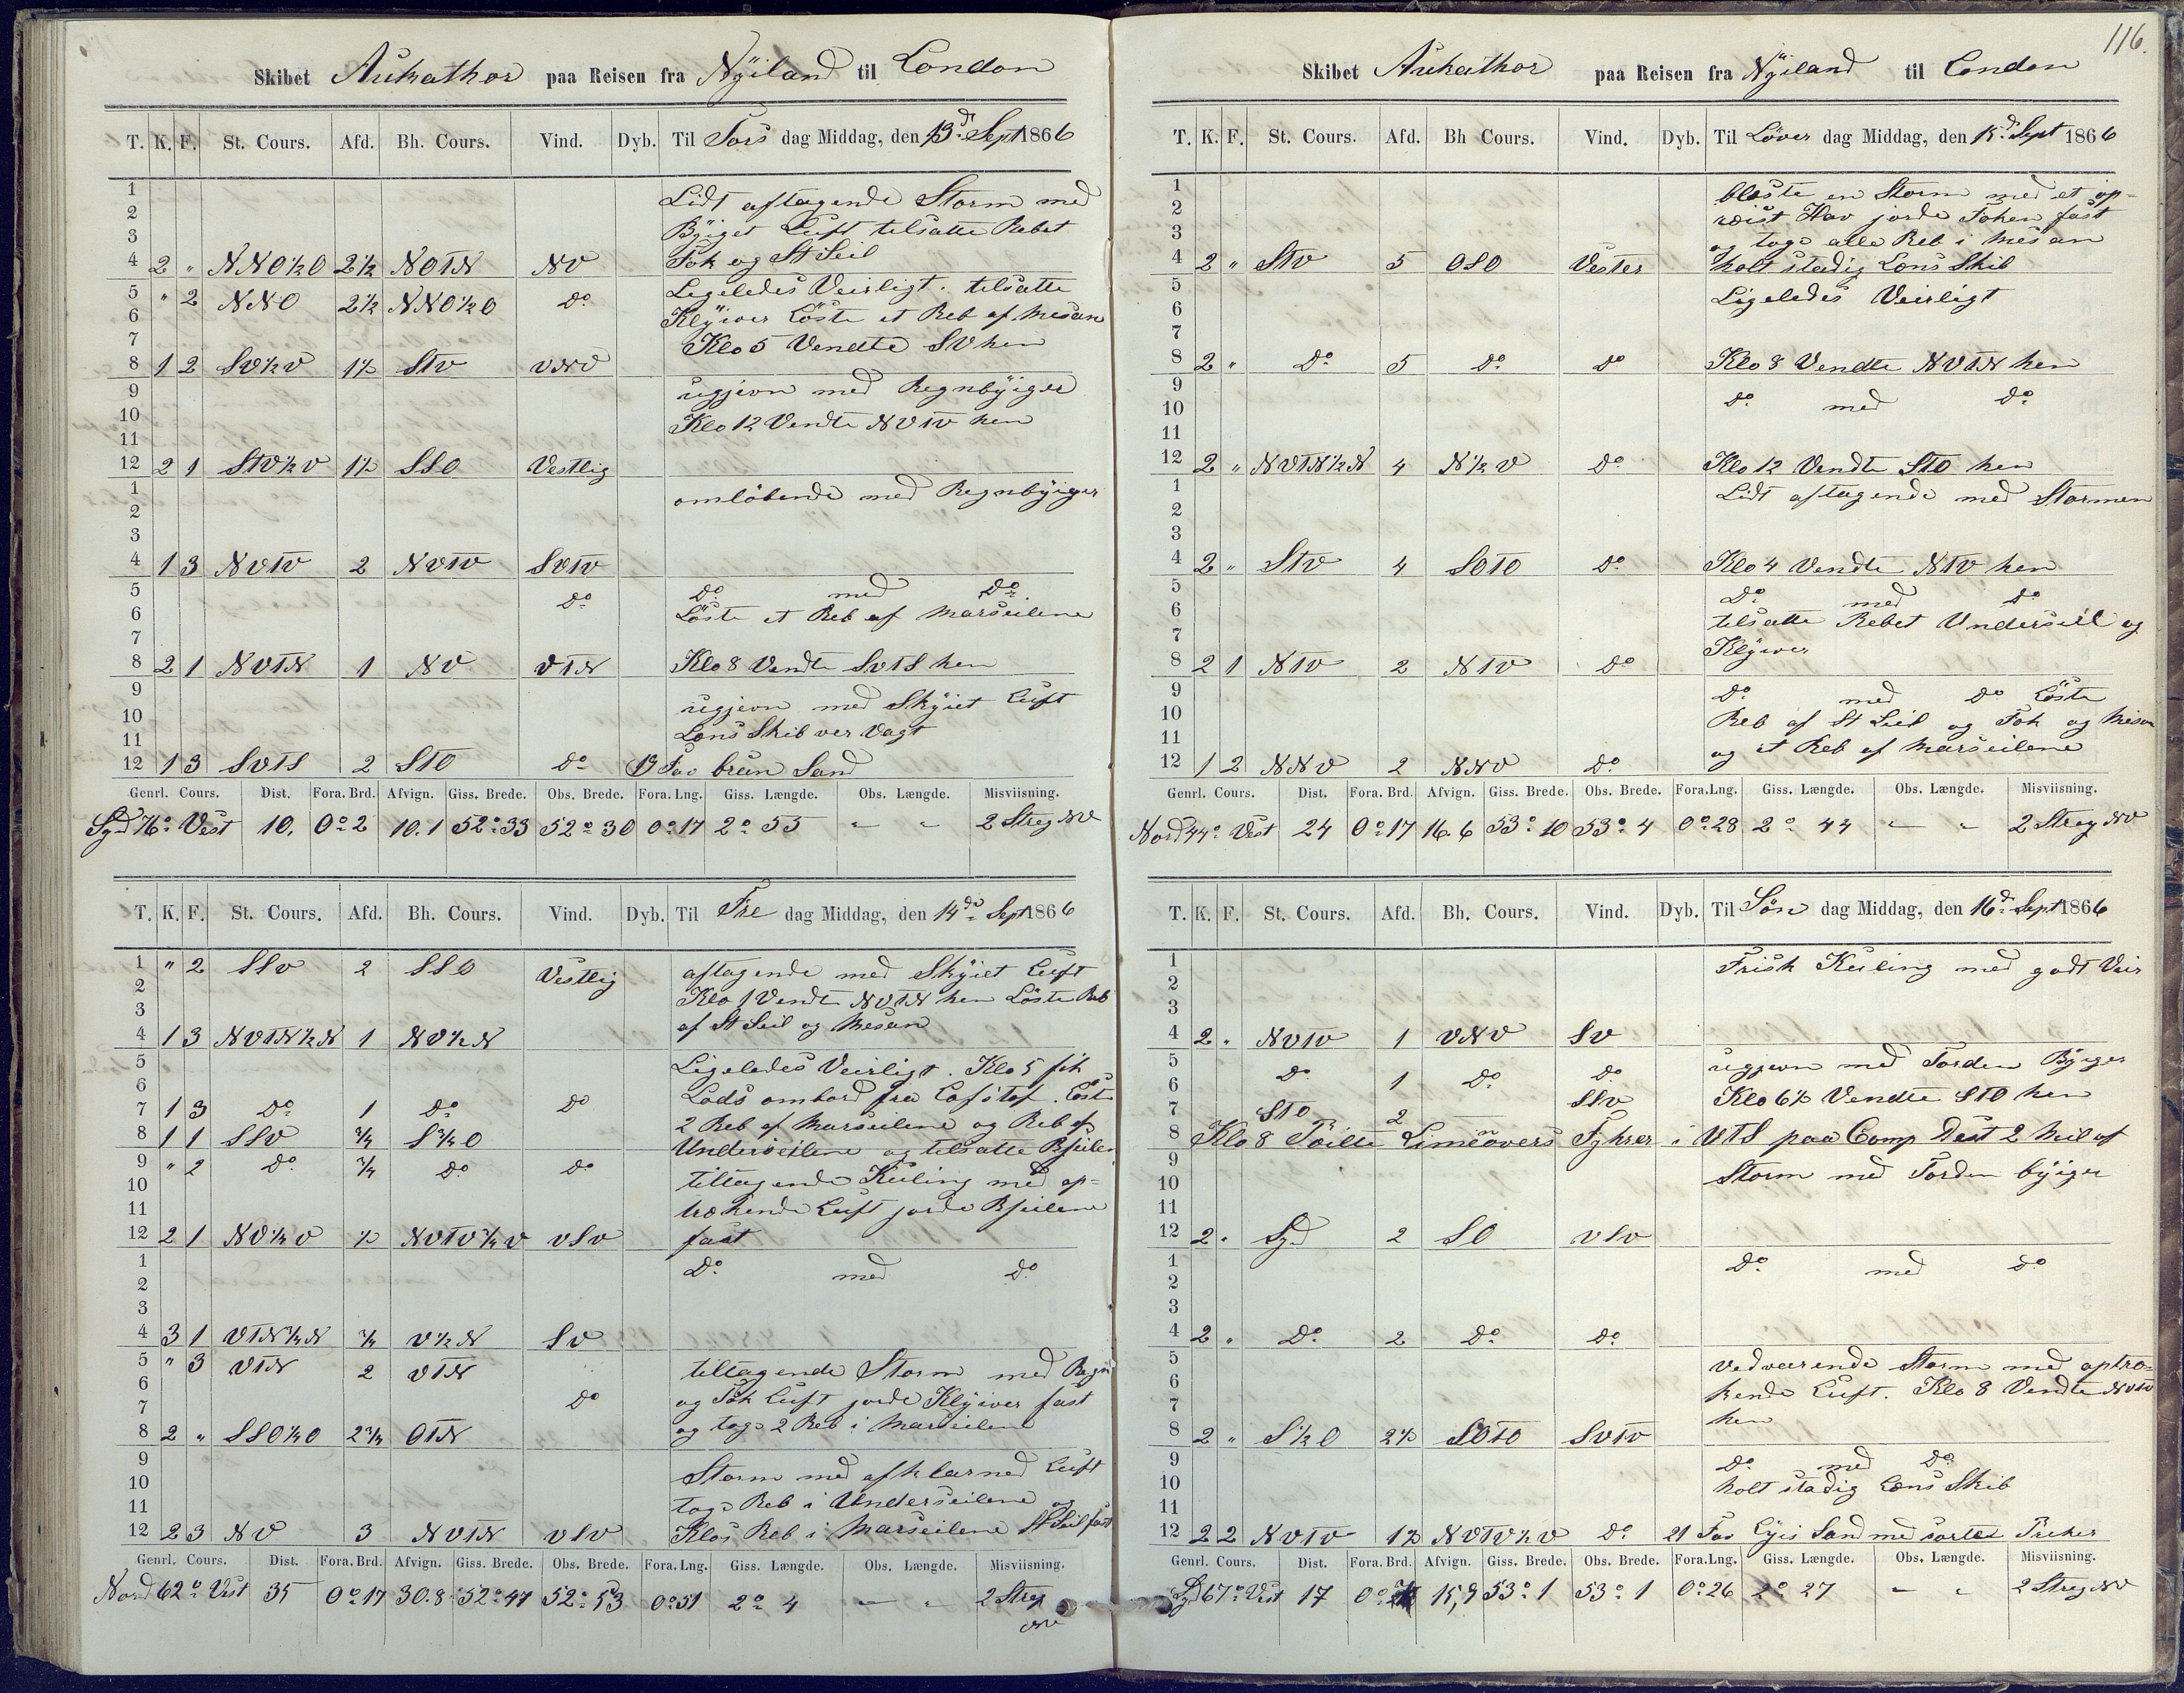 116.
Skibet Aukathor paa Reisen fra Nÿiland til London
T. K. F. St. Cours. Afd. Bh. Cours. Vind. Dyb. Til Tors dag Middag, den 13d Sept 1866
1 Lidt aftagende Storm med
2 Bÿiget Luft tilsatte Rebet
3 Fok og St Seil
4 2 " NNO½O 2½ NOTN NV
5 " 2 NNO 2½ NNO½O Do Ligeledes Veirligt. tilsatte
6 Klÿiver Löste et Reb af Mesan
7 Klo 5 Vendte SV hen
8 1 2 SV½V 1½ STV VNV
9 ugjevn med Regnbÿiger
10 Klo 12 Vendte NVTV hen
11
12 2 1 STV½V 1½ SSO Vestlig
1 omlöbende med Regnbÿiger
2
3
4 1 3 NVTV 2 NVTV SVTV
5 Do Do med Do
6 Löste et Reb af Marseilene
7
8 2 1 NVTN 1 NV VTN Klo 8 Vendte SVTS hen
9 ugjevn med Skÿiet Luft
10 Lens Skib ver Vagt
11
12 1 3 SVTS 2 STO Do 19 Fav brun Sand
Genrl. Cours. Dist. Fora. Brd. Afvign. Giss. Brede. Obs. Brede. Fora. Lng. Giss. Længde. Obs. Længde. Misviisning.
Syd 76° Vest 10. 0° 2 10.1 52° 33 52° 30 0° 17 2° 55 " " 2 Streg NV
T. K. F. St. Cours. Afd. Bh. Cours. Vind. Dyb. Til Fre dag Middag, den 14de Sept 1866
1 " 2 SSV 2 SSO Vestlig aftagende med Skÿiet Luft
2 Klo 1 Vendte NVTN hen Löste Reb
3 af St Seil og Mesan
4 1 3 NVTN½N 1 NV½N
5 Ligeledes Veirligt. Klo 5 fik
6 Lods ombord fra
7 1 3 Do 1 Do Do 2 Reb af Marseilene og Reb af
8 1 1 SSV ¾ S¾O Underseilene og tilsatte Bseilen
9 " 2 Do ¾ Do Do tiltagende Kuling med op-
10 trækende Luft jorde Bseilene
11 fast
12 2 1 NV¼V ½ NVTV¾V VSV
1 Do med Do
2
3
4 3 1 VTN¾N ¾ V½N SV
5 " 3 VTN 2 VTN tiltagende Storm med Regn
6 og Tök Luft jorde Klÿiver fast
7 Do og togs 2 Reb i Marseilene
8 2 " SSO¼O 2¾ OTN
9 Storm med afklarned Luft
10 togs Reb i Underseilene og
11 Klos Reb i Marseilene St Seil fast
12 2 3 NV 3 NVTN VSV
Genrl. Cours. Dist. Fora. Brd. Afvign. Giss. Brede. Obs. Brede. Fora. Lng. Giss. Længde. Obs. Længde. Misviisning.
Nord 62° Vest 35 0° 17 30.8 52° 47 52° 53 0° 51 2° 4 " " 2 Streg NV
Skibet Aukathor paa Reisen fra Nÿeland til London
T. K. F. St. Cours. Afd. Bh Cours. Vind. Dyb. Til Löver dag Middag, den 15d Sept 1866
1 bleste en Storm med et op-
2 röist Hav jorde Foken fast
3 og togs alle Reb i Mesan
4 2 " STV 5 OSO Vester holt stadig Lens Skib
5 Ligeledes Veirligt
6
7
8 2 " Do 5 Do Do Klo 8 Vendte NVTN hen
9 Do med Do
10
11
12 2 " NVTN½N 4 N½V Do Klo 12 Vendte STO hen
1 Lidt aftagende med Stormen
2
3
4 2 " STV 4 SOTO Do Klo 4 Vendte NTV hen
5 Do med Do
6 tilsatte Rebet Underseil og
7 Klÿiver
8 2 1 NTV 2 NTV Do
9 Do med Do Löste
10 Reb af St Seil og Fok og Mesan
11 og et Reb af Marseilene
12 1 2 NNV 2 NNV Do
Genrl. Cours. Dist. Fora. Brd. Afvign. Giss. Brede. Obs. Brede. Fora. Lng. Giss. Længde. Obs. Længde. Misviisning.
Nord 44° Vest 24 0° 17 16.6 53° 10 53° 4 0° 28 2° 44 " " 2 Streg NV
T. K. F. St. Cours. Afd. Bh. Cours. Vind. Dyb. Til Sön dag Middag, den 16d Sept 1866
1 Frisk Kuling med godt Veir
2
3
4 2 " NVTV 1 VNV SV
5 ugjevn med Torden Bÿiger
6 Do 1 Do Do Klo 6½ Vendte STO hen
7 STO 2 SSV
8 Klo 8 Peilte Fyhrer i VTS paa Comp Dist 2 Mil af
9 Storm med Torden bÿiger
10
11
12 2 " Syd 2 SO VSV
1 Do med Do
2
3
4 2 " Do 2 Do Do
5 vedvarende Storm med optræ-
6 kende Luft. Klo 8 Vendte NVTV
7 hen
8 2 " S½O 2½ SOTO SVTV
9 Do med Do
10 holt stadig Lens Skib
11
12 2 2 NVTV 1½ NVTV½V Do 21 Fav Lÿis Sand med sorte Preker
Genrl. Cours. Dist. Fora. Brd. Afvign. Giss. Brede. Obs. Brede. Fora. Lng. Giss. Længde. Obs. Længde. Misviisning.
Syd 67° Vest 17 0° 15,9 53° 1 53° 1 0° 26 2° 27 " " 2 Streg NV